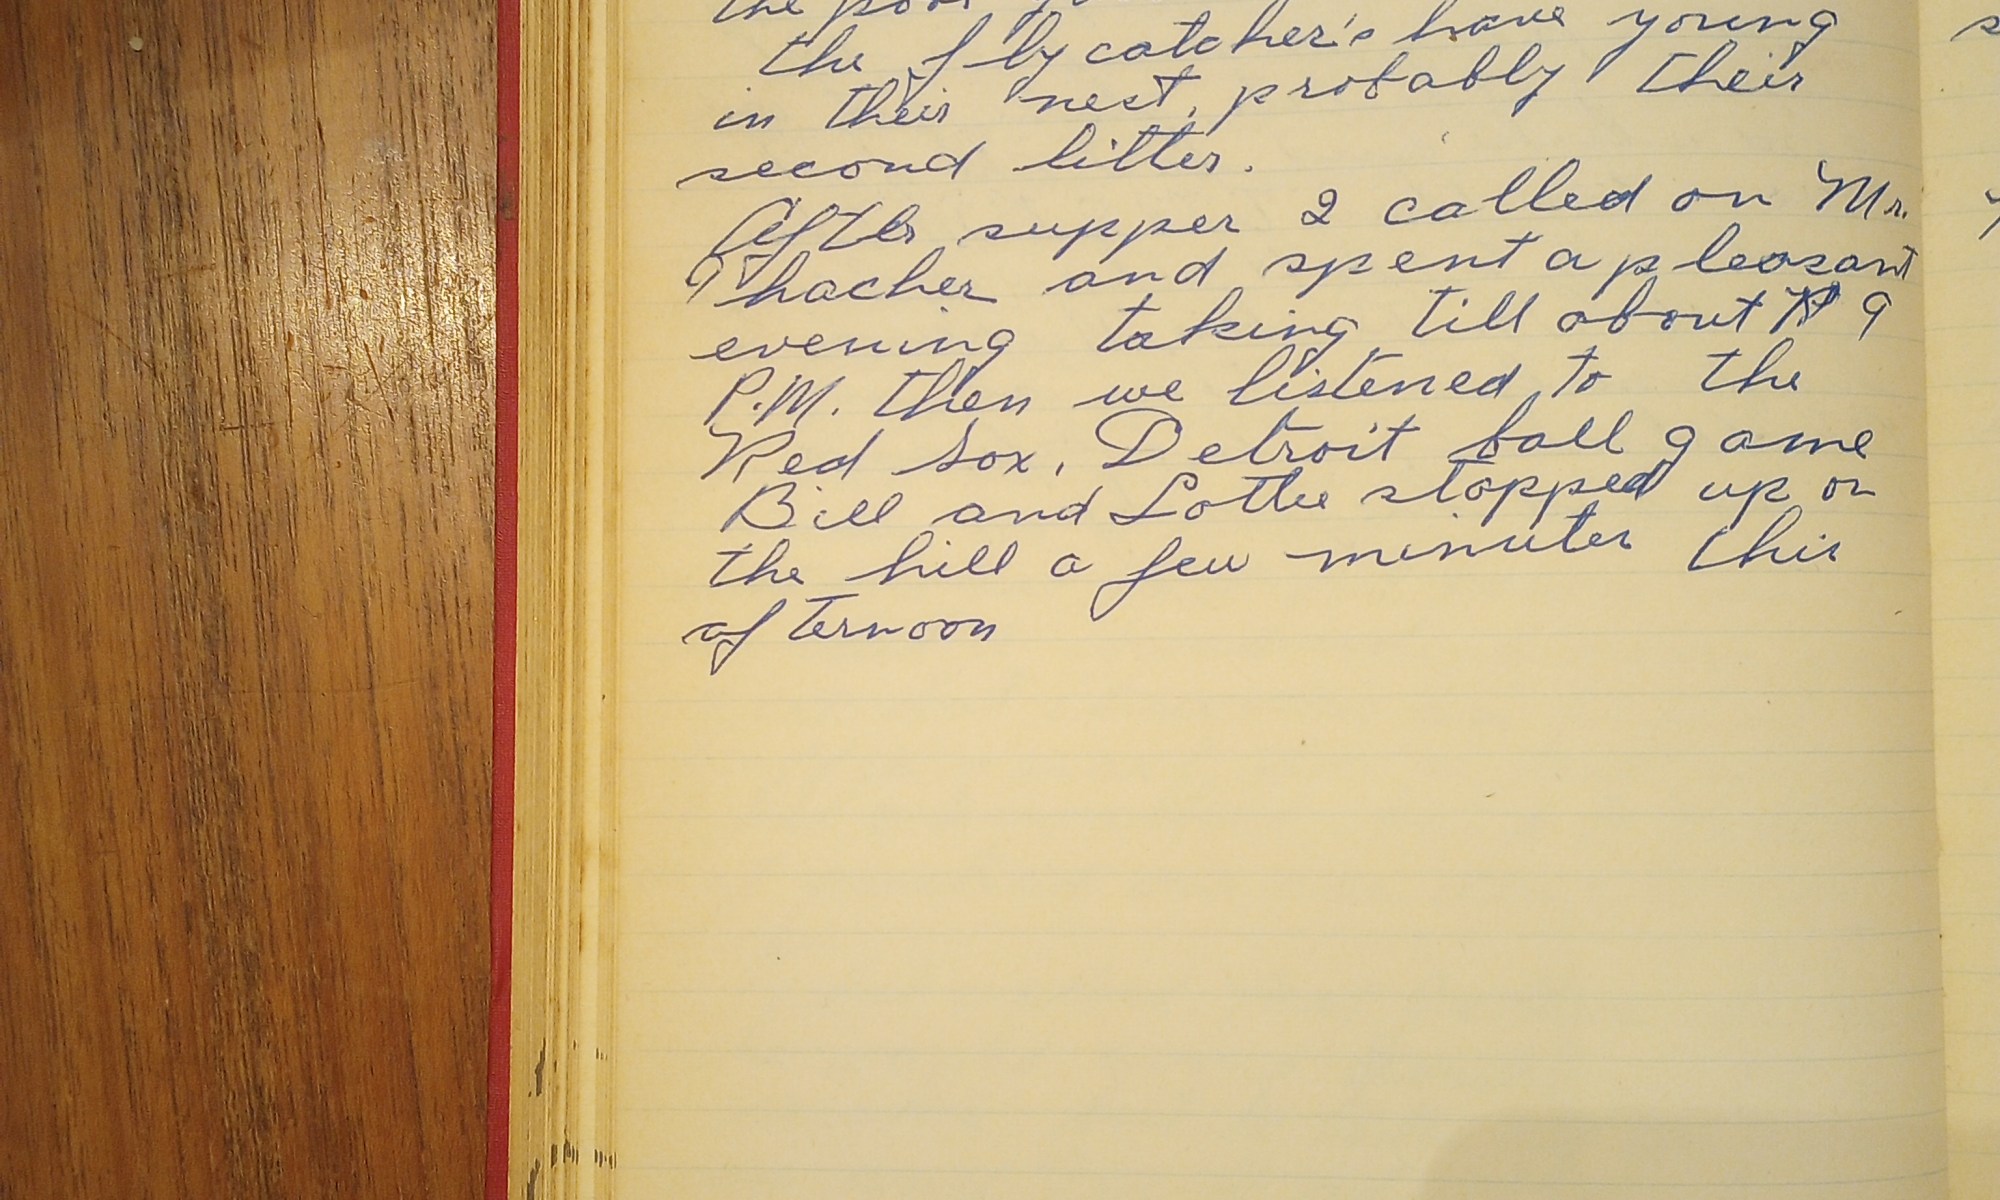 the
the fly catcher's have young
in their nest, probably their
second litter.
After supper I called on Mr.
Thacher and spent a pleasant
evening taking till about 9
P.M. then we listened to the
Red Sox, Detroit ball game
Bill and Lottie stopped up on
the hill a few minutes this
afternoon